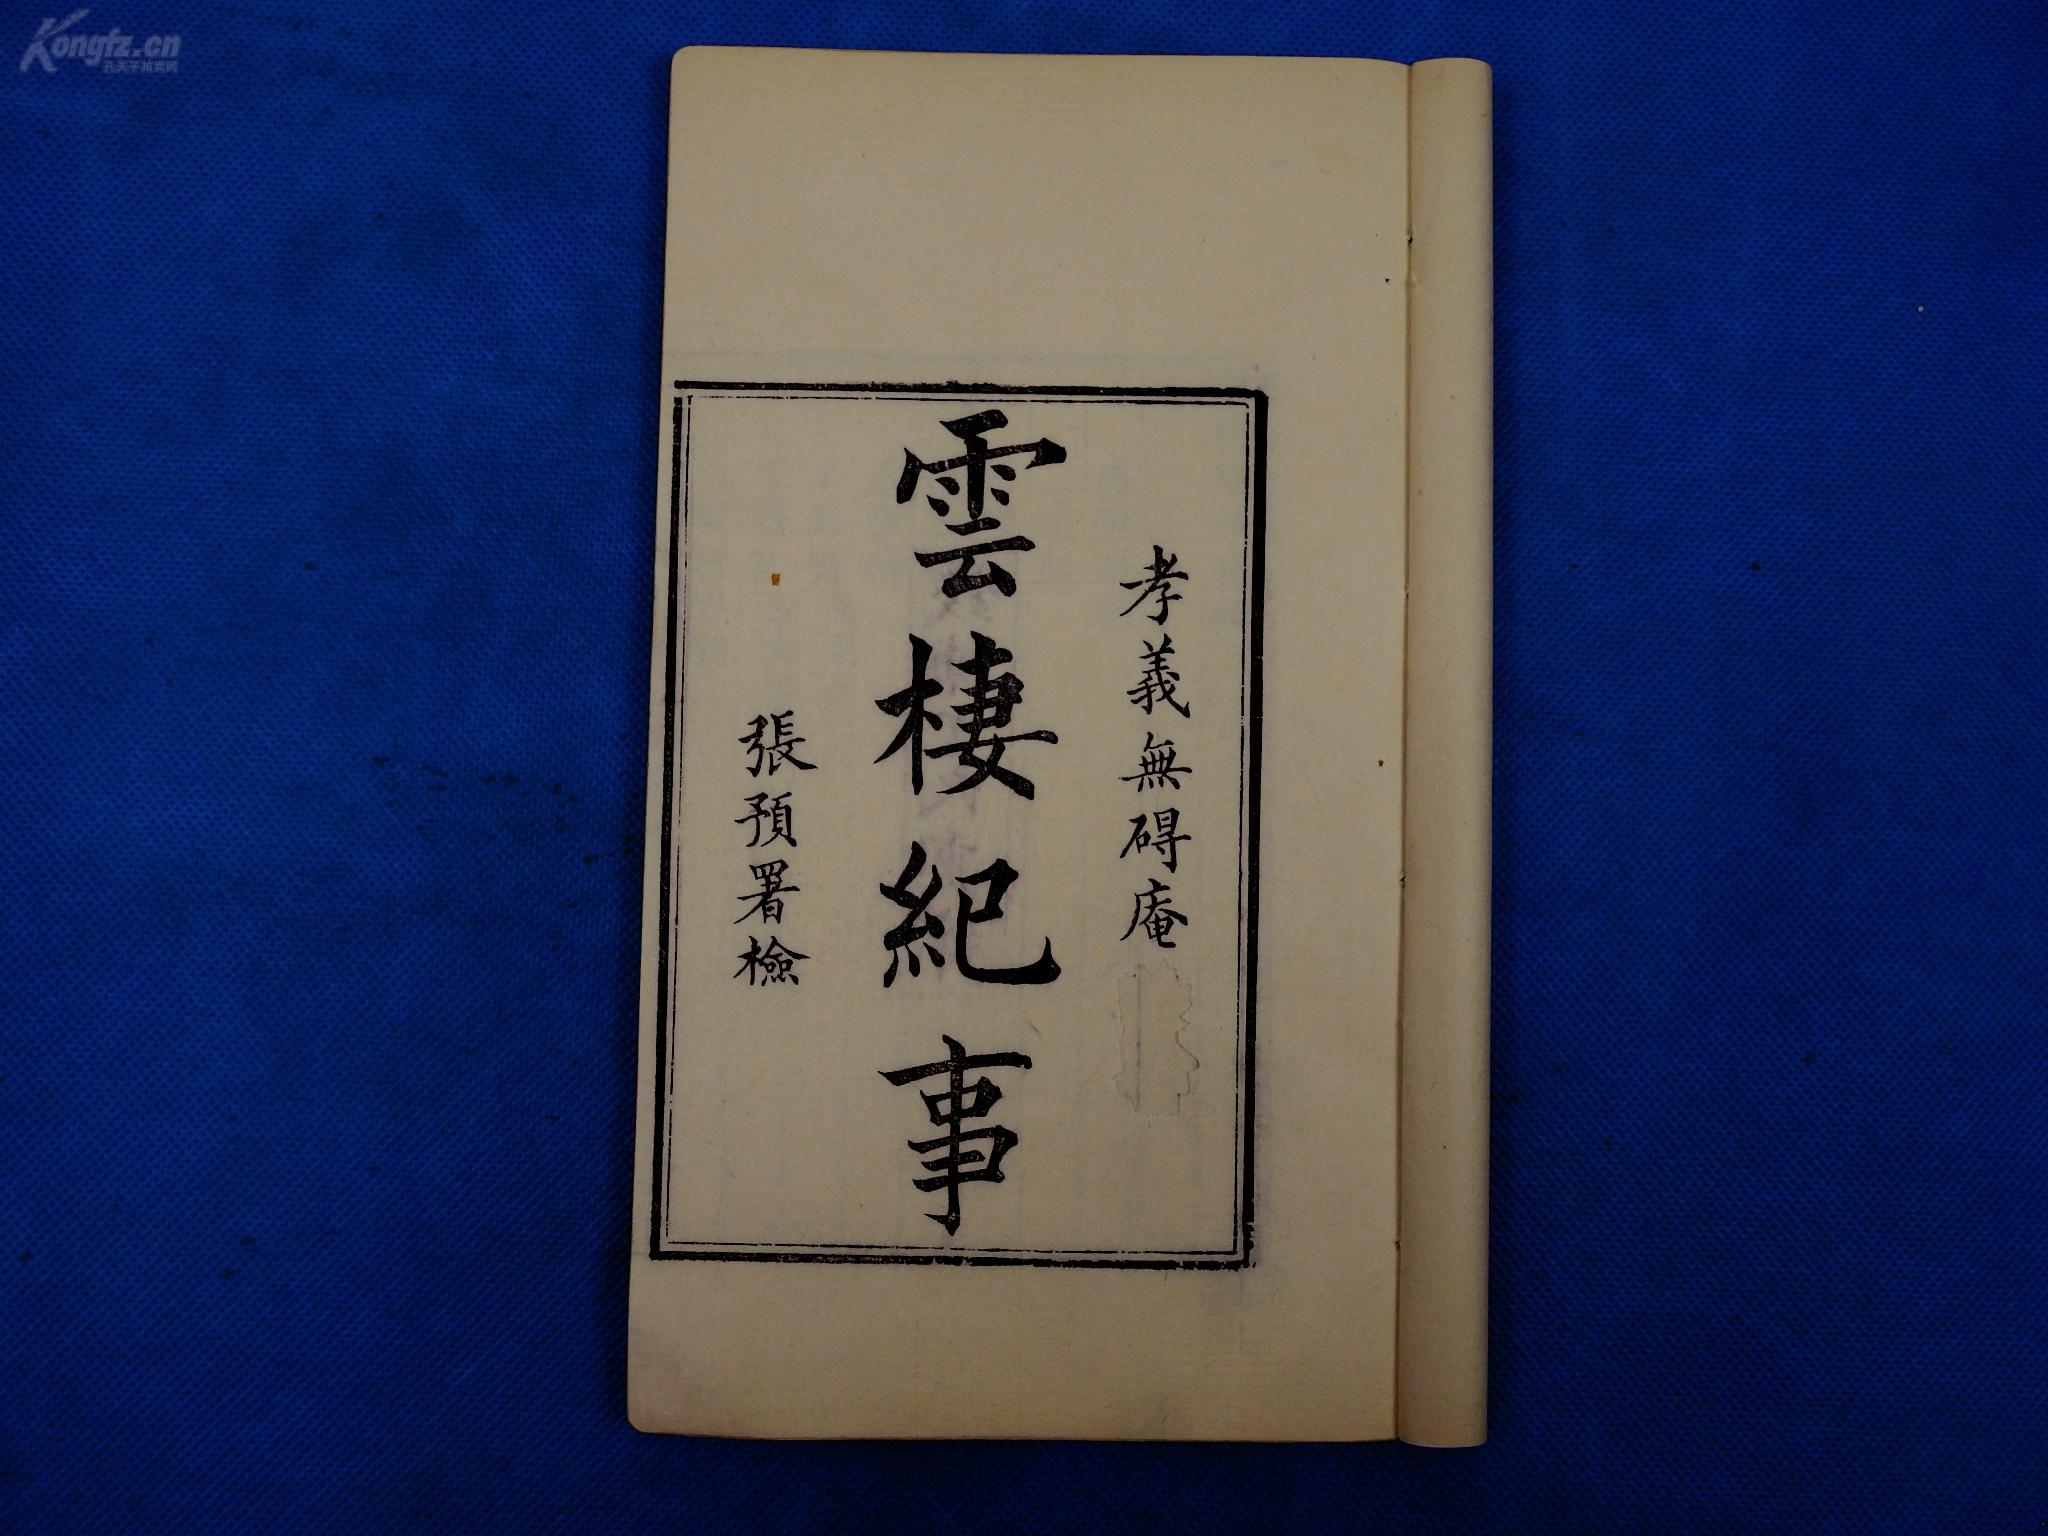 孝義無碍庵
雲棲紀事
張預署檢
Kongfz.cn
孔夫子拍卖网